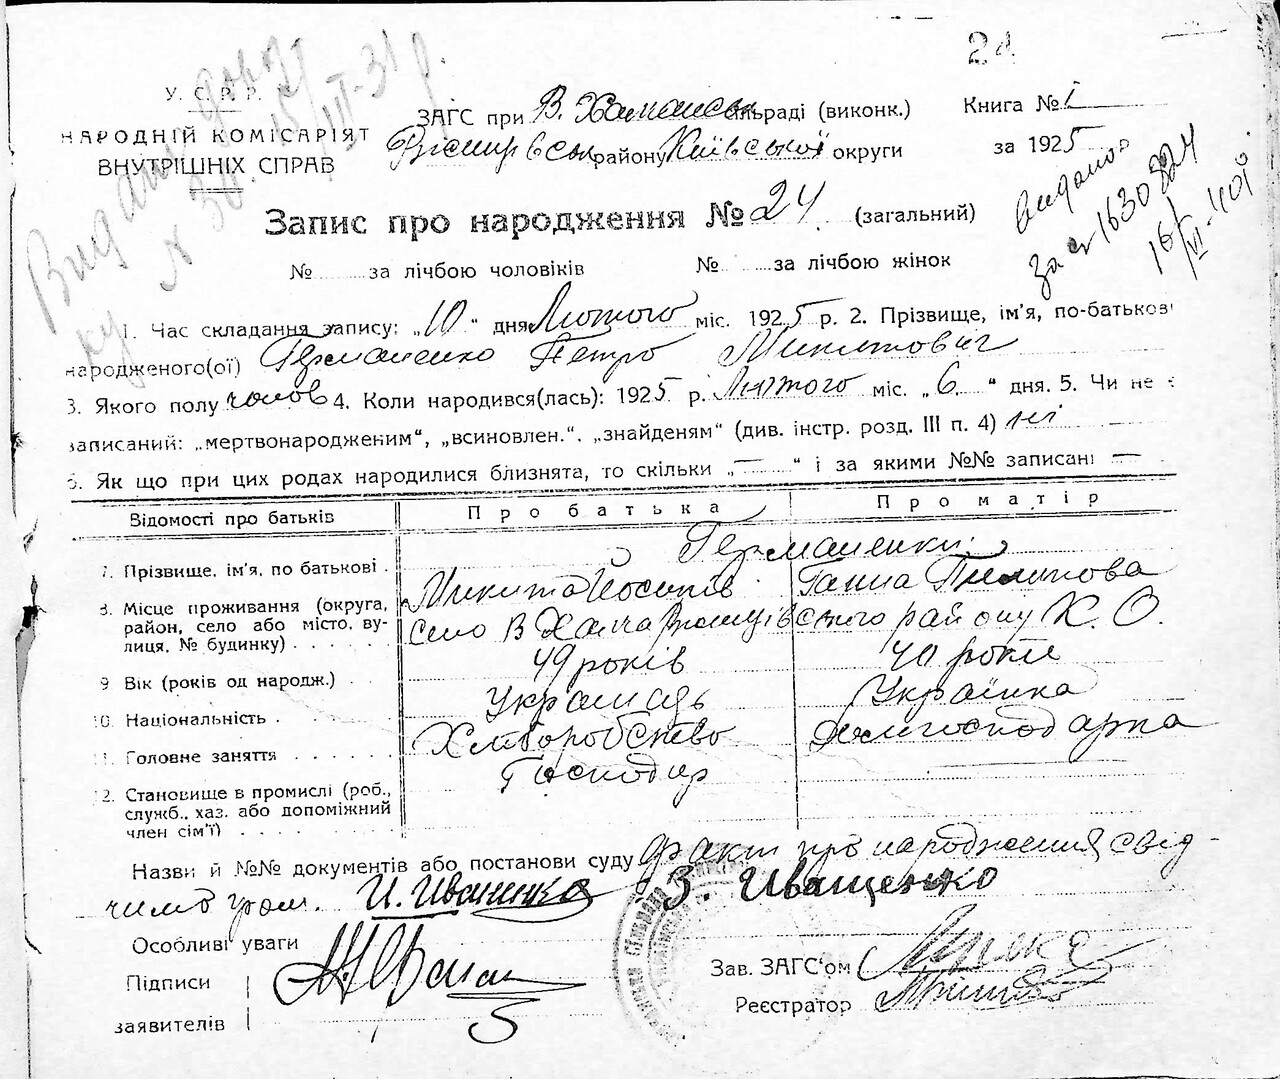 24
У. С. Р. Р.
НАРОДНІЙ КОМІСАРІЯТ
ВНУТРІШНІХ СПРАВ
ЗАГС при В. сільраді (виконк.)
району Київської округи
Книга № 1
за 1925
Видано
16/VI-40 р.
Запис про народження № 24. (загальний)
№ за лічбою чоловіків № за лічбою жінок
1. Час складання запису: „10“ дня Лютого міс. 1925 р. 2. Прізвище, ім'я, по-батькові
народженого(ої) Германенко Петро Микитович
3. Якого полу чолов 4. Коли народився(лась): 1925 р. Лютого міс. „6“ дня. 5. Чи не є
записаний: „мертвонародженим“, „всиновлен.“, „знайденям“ (див. інстр. розд. III п. 4) ні
6. Як що при цих родах народилися близнята, то скільки „—“ і за якими №№ записані —
Відомості про батьків Про батька Про матір
Германенки:
7. Прізвище, ім'я, по батькові . Микита Йосипів Ганна Пилипова
8. Місце проживання (округа, район, село або місто, вулиця, № будинку) село В Хача району К. О.
9 Вік (років од народж.) . 49 років 40 років
10. Національність . Українець Українка
11. Головне заняття . . . . . . Хліборобство Домгосподарка
12. Становище в промислі (роб., служб., хаз. або допоміжний член сім'ї) . . . . . Господар
Назви й №№ документів або постанови суду Факт про народження свід-
чимо гром. И. Иваненко З. Иващенко
Особливі уваги
Підписи
заявителів
Зав. ЗАГС'ом
Реєстратор